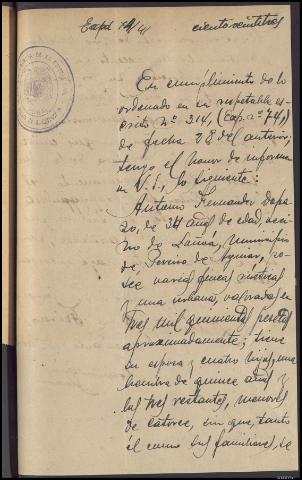 Expd 74/41 ciento veintitres
En cumplimiento de lo
ordenado en su respetable es-
crito nº 214, (Exp. nº 74),
de fecha 28 del anterior,
tengo el honor de informar
a V.S., lo siguiente:
Antonio Fernandez Dopa-
zo, de 34 años de edad, veci-
no de Lamá, municipio
de, Pereiro de Aguiar, po-
see varias fincas rústicas
y una urbana, valoradas en
tres mil quinientas pesetas
aproximadamente; tiene
su esposa y cuatro hijos, una
hembra de quince años y
los tres restantes, menores
de catorce, sin que, tanto
él como sus familiares, se